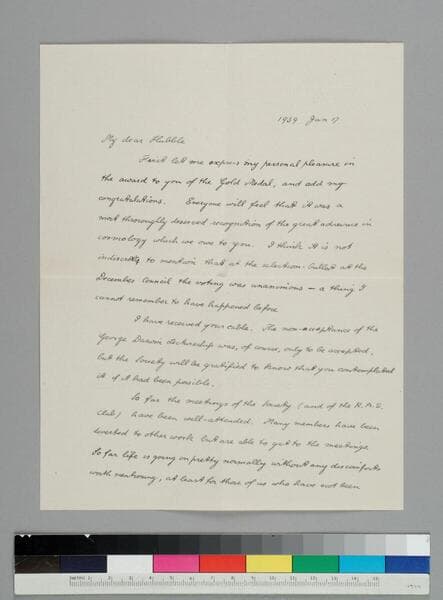 1939 Jan 17
My dear Hubble
First let me express my personal pleasure in
the award to you of the Gold Medal, and add my
congratulations. Everyone will feel that it was a
most thoroughly deserved recognition of the great advance in
cosmology which we owe to you. I think it is not
indiscrete to mention that at the selection-ballot at the
December Council the voting was unanimous — a thing I
cannot remember to have happened before
I have received your cable. The non-acceptance of the
George Darwin lectureship was, of course, only to be accepted,
but the Society will be gratified to know that you contemplated
it if it had been possible.
So far the meetings of the Society (and of the R.A.S.
Club) have been well-attended. Many members have been
diverted to other work but are able to get to the meetings.
So far life is going on pretty normally without any discomforts
worth mentioning, at least for those of us who have not been